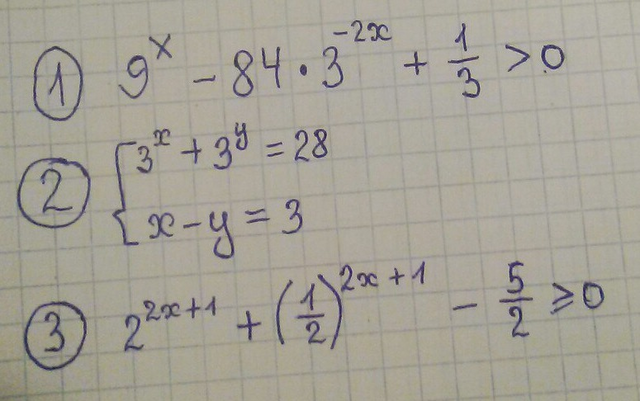 ① 9^x - 84 · 3^{-2x} + 1/3 > 0
② { 3^x + 3^y = 28
x - y = 3
③ 2^{2x+1} + (1/2)^{2x+1} - 5/2 ⩾ 0